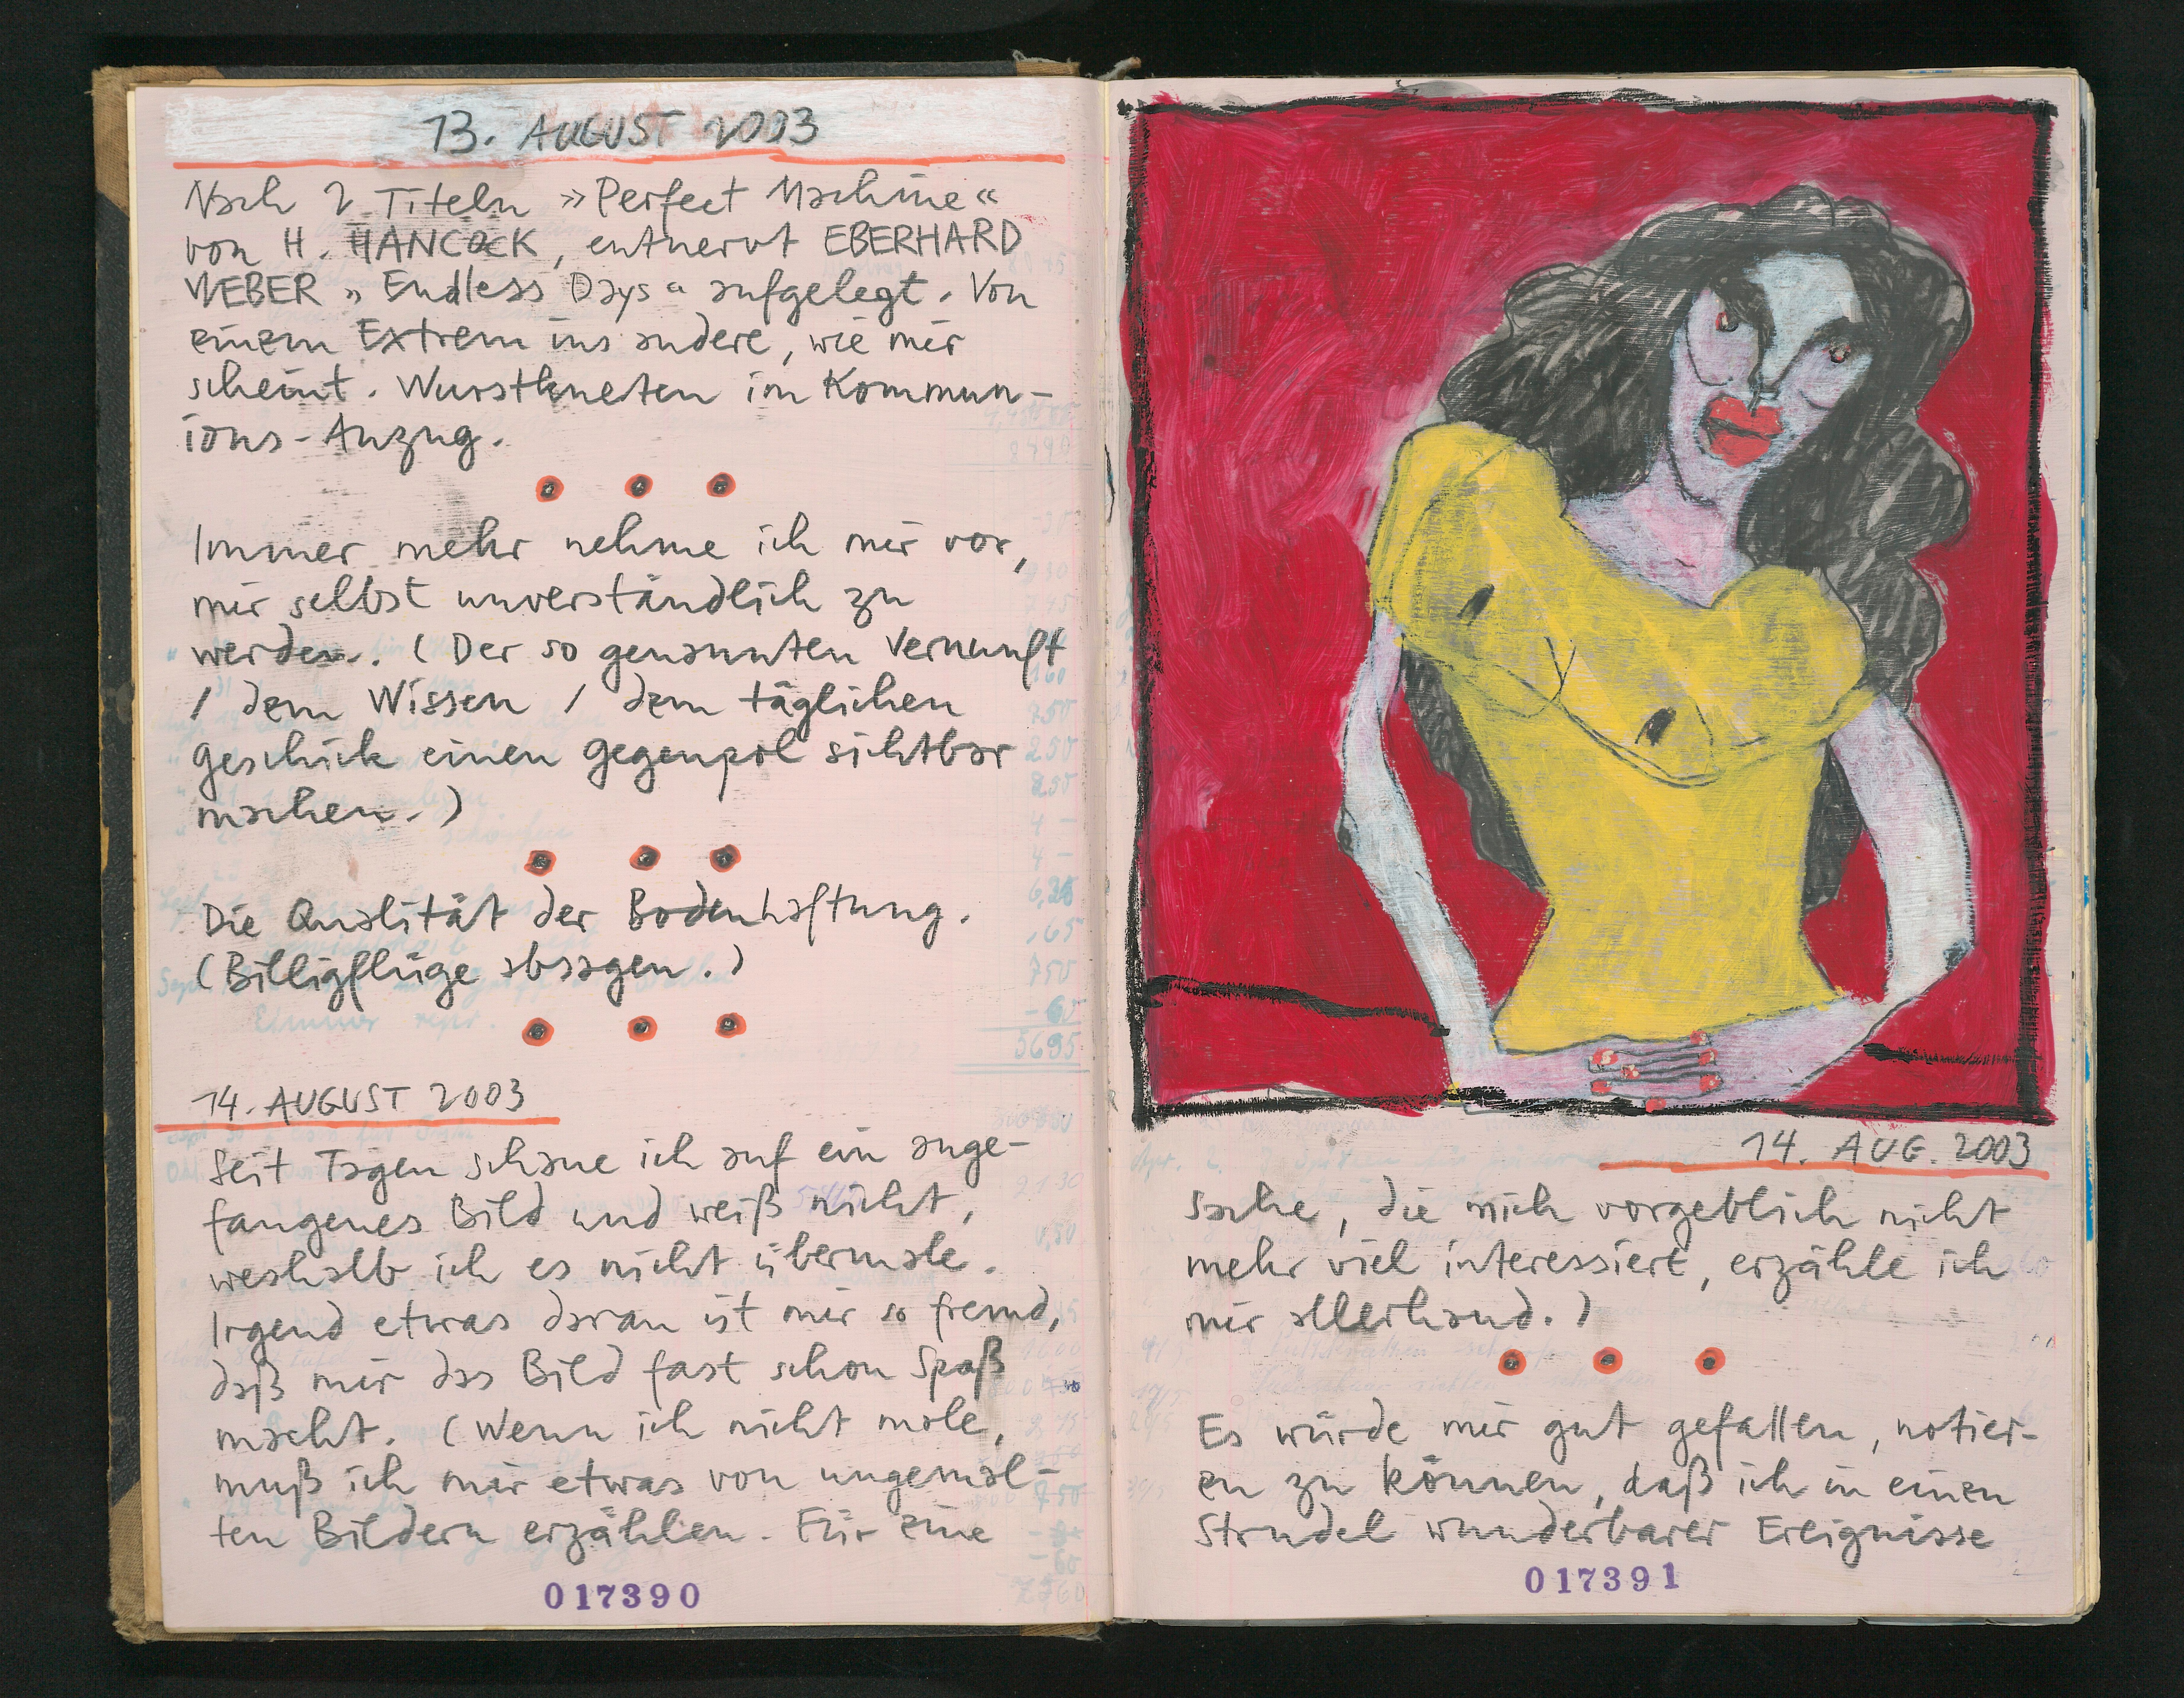 13. AUGUST 2003
Nach 2 Titeln »Perfect Machine«
von H. HANCOCK, entnervt EBERHARD
WEBER „Endless Days“ aufgelegt. Von
einem Extrem ins andere, wie mir
scheint. Wurstkneten im Kommun-
ions-Anzug.
Immer mehr nehme ich mir vor,
mir selbst unverständlich zu
werden. (Der so genannten Vernunft
/ dem Wissen / dem täglichen
Geschick einen Gegenpol sichtbar
machen.)
Die Qualität der Bodenhaftung.
(Billigflüge absagen.)
14. AUGUST 2003
Seit Tagen schaue ich auf ein ange-
fangenes Bild und weiß nicht,
weshalb ich es nicht übermale.
Irgend etwas daran ist mir so fremd,
daß mir das Bild fast schon Spaß
macht. (Wenn ich nicht male,
muß ich mir etwas von ungemal-
ten Bildern erzählen. Für eine
017390
14. AUG. 2003
Sache, die mich vorgeblich nicht
mehr viel interessiert, erzähle ich
mir allerhand.)
Es würde mir gut gefallen, notier-
en zu können, daß ich in einen
Strudel wunderbarer Ereignisse
017391